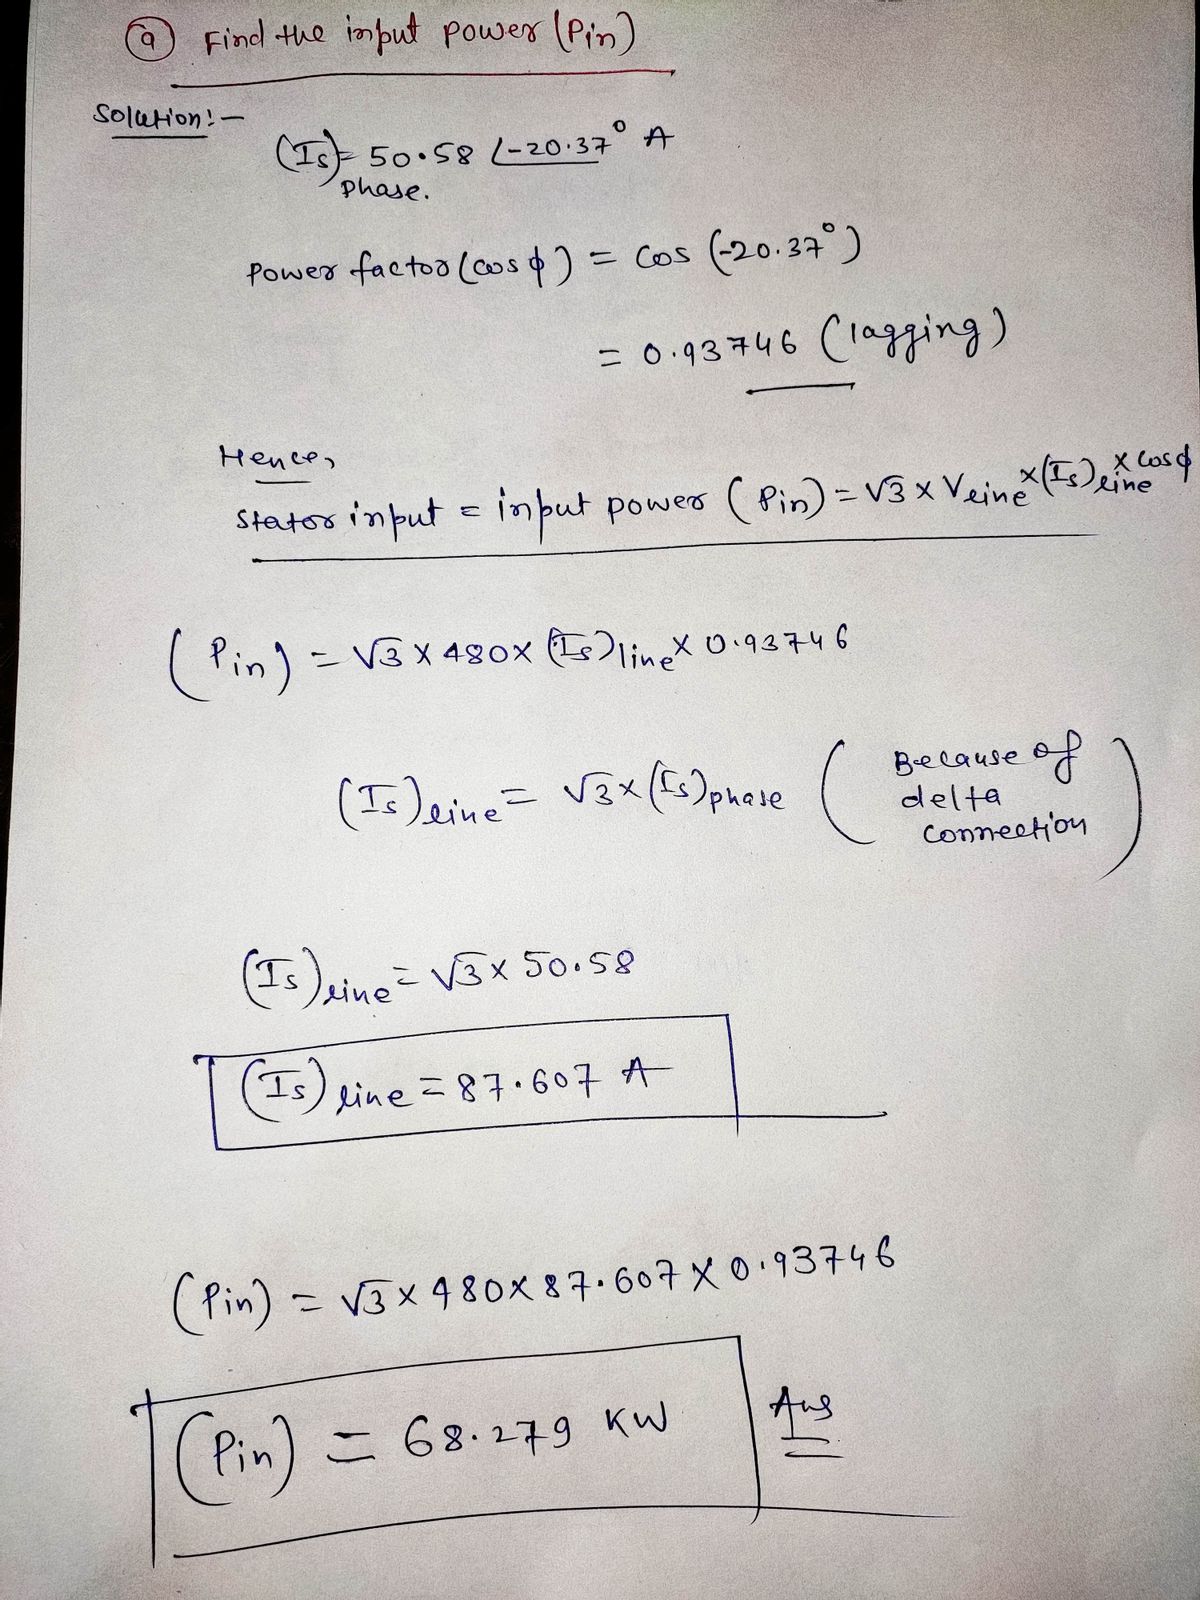 (a) Find the input power (Pin)
Solution:-
(Is)phase. = 50.58 ∠-20.37° A
Power factor (cos ϕ) = cos (-20.37°)
= 0.93746 (lagging)
Hence,
Stator input = input power (Pin) = √3 x Vline x (Is)line x cos ϕ
(Pin) = √3 x 480 x (Is)line x 0.93746
(Is)line = √3 x (Is)phase (Because of
delta
connection)
(Is)line = √3 x 50.58
(Is)line = 87.607 A
(Pin) = √3 x 480 x 87.607 x 0.93746
(Pin) = 68.279 KW Ans